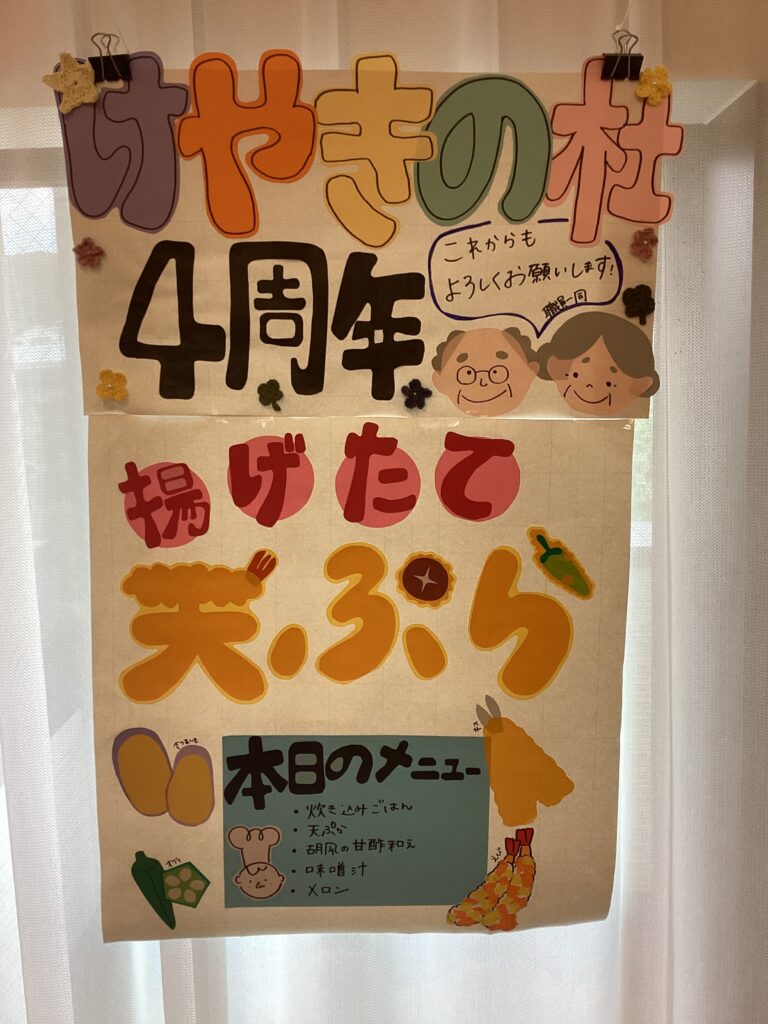 けやきの杜
4周年
これからも
よろしくお願いします!
職員一同
揚げたて
天ぷら
さつまいも
本日のメニュー
・炊き込みごはん
・天ぷら
・胡瓜の甘酢和え
・味噌汁
・メロン
おくら
えび